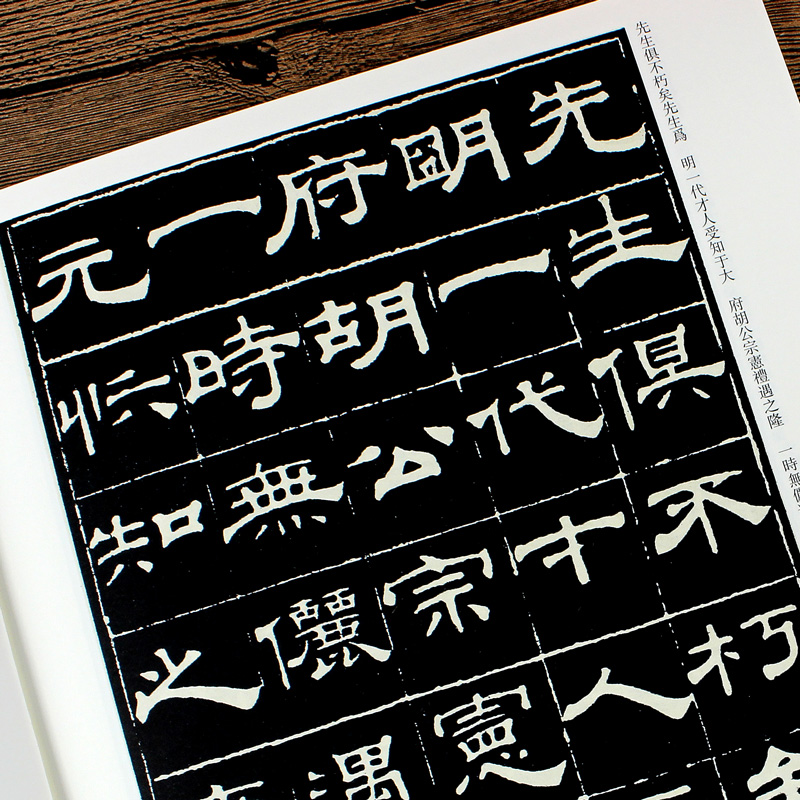 先生俱不朽矣先生爲 明一代才人受知于大 府胡公宗憲禮遇之隆 一時無
先生俱不朽
明一代才人
府胡公宗憲
一時無儷遇
元忭知之